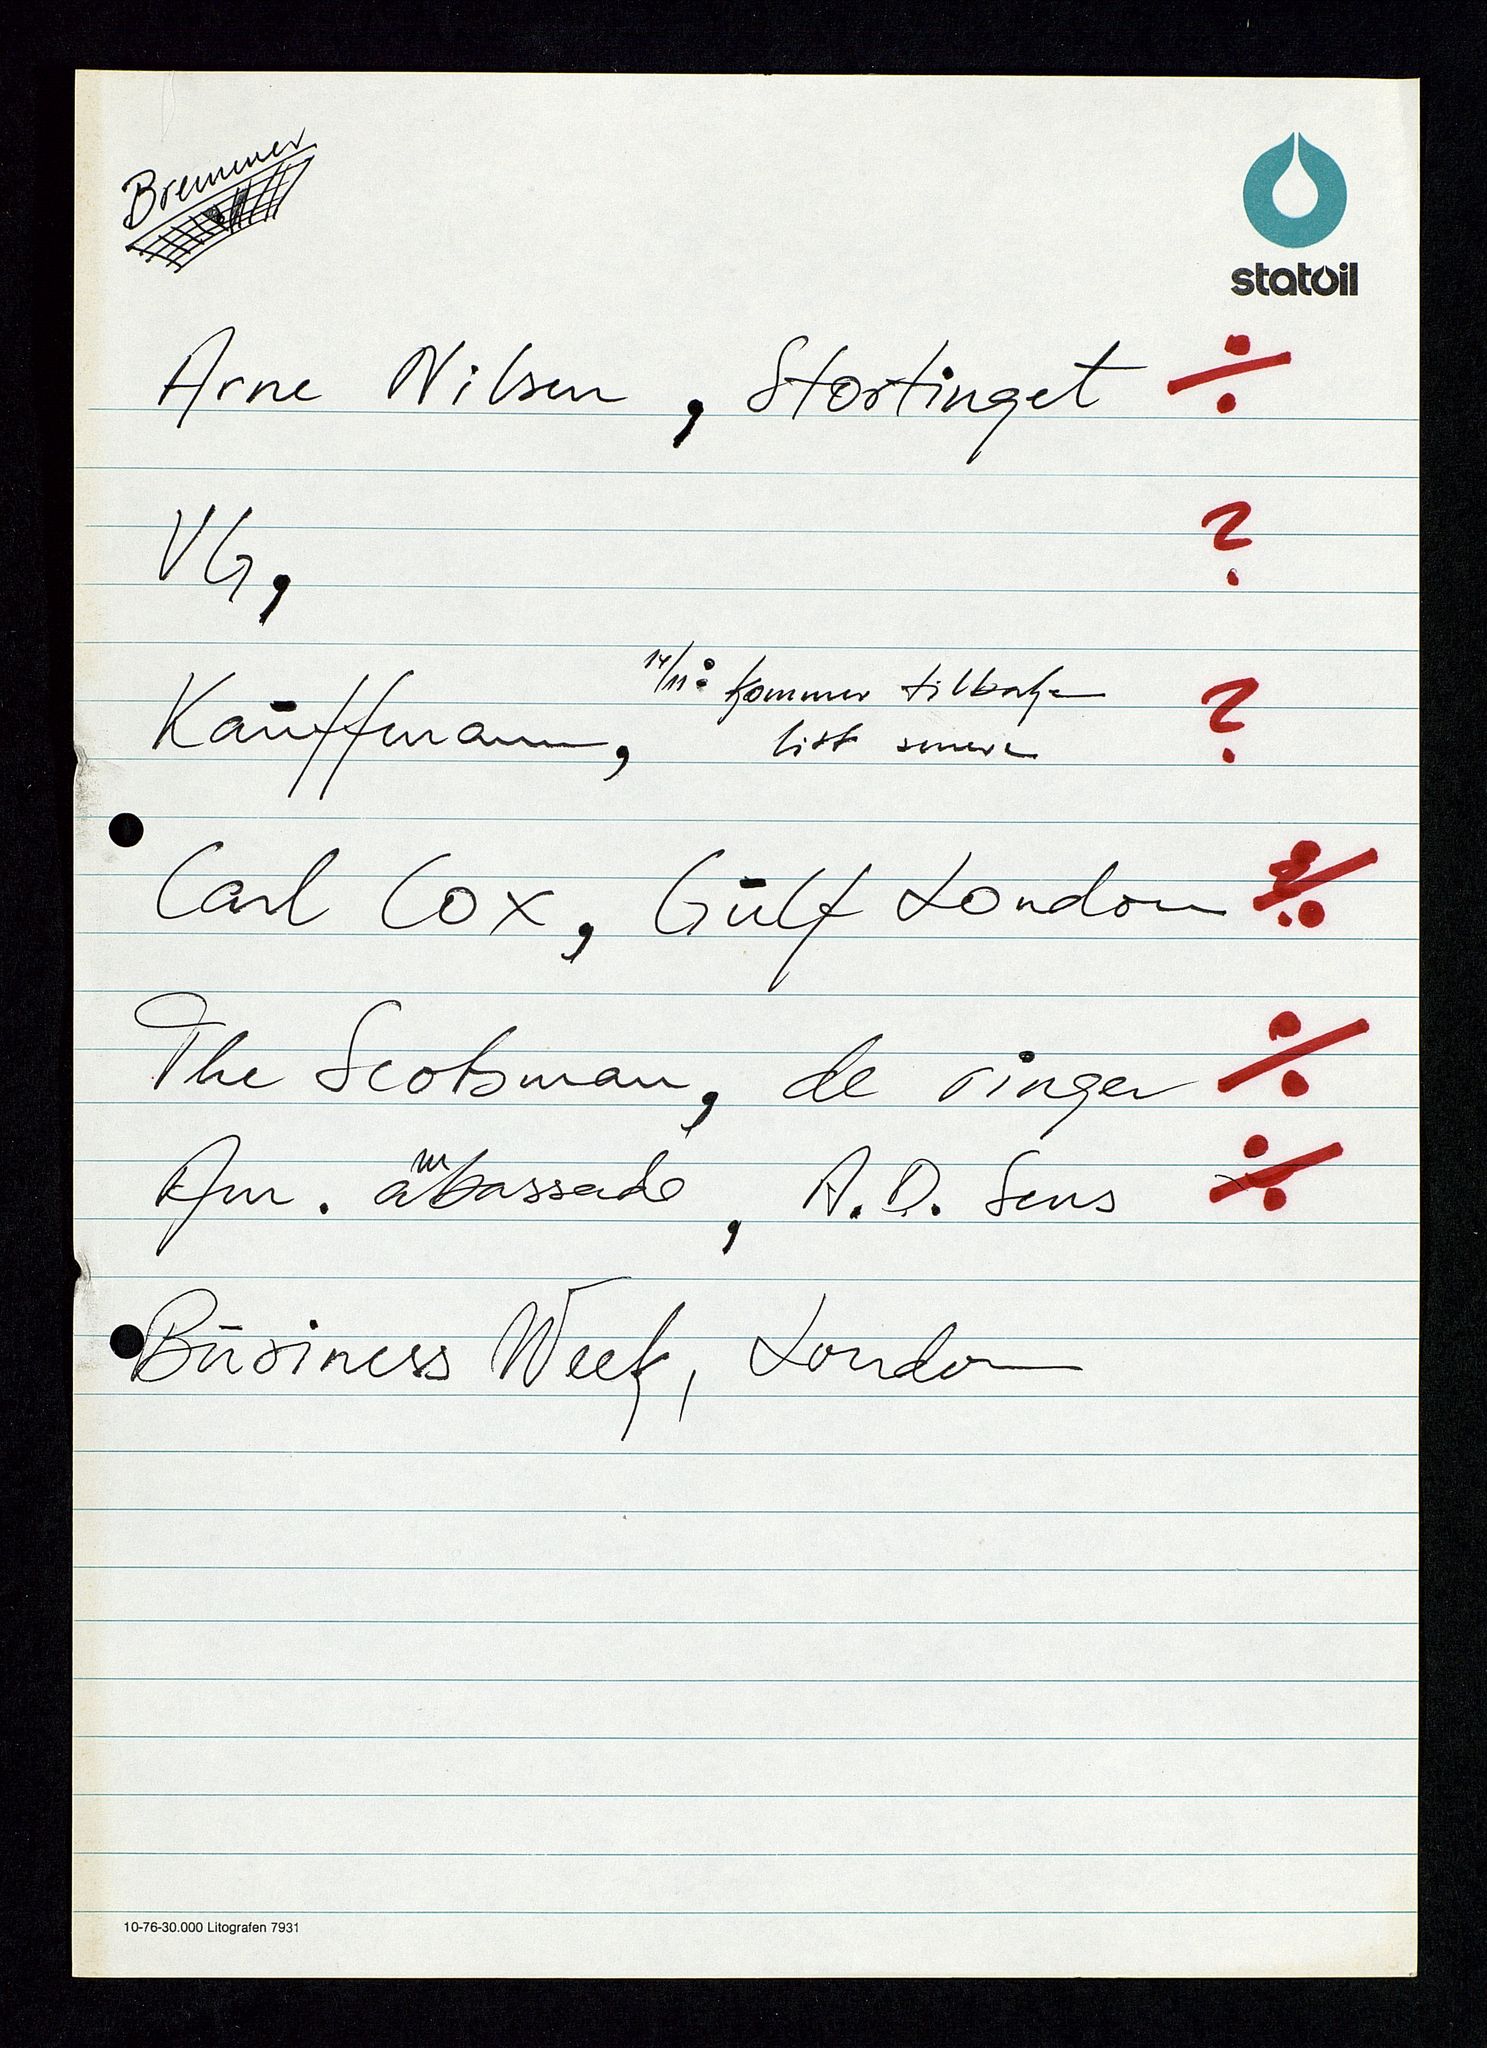 Bremmer
statoil
Arne Nilsen, Stortinget ÷
VG, ?
Kauffmann, 14/11: kommer tilbake ?
litt senere
Carl Cox, Gulf London ÷
The Scotsman, de ringer ÷
Am. ambassade, A.D. Sens ÷
Business Week, London
10-76-30.000 Litografen 7931